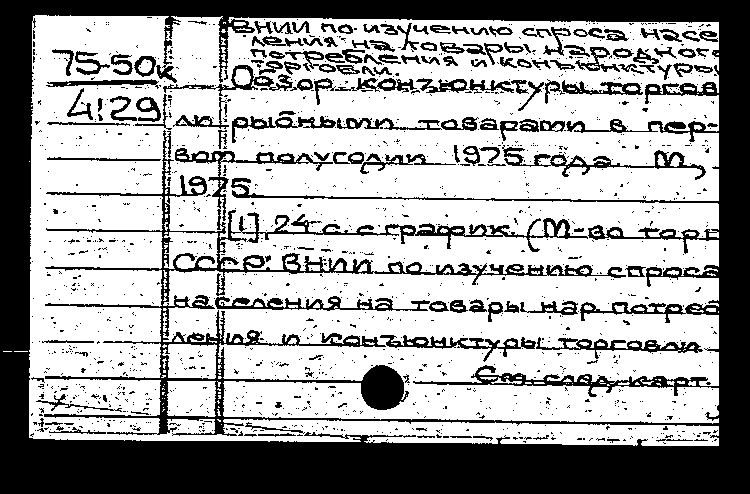 ВНИИ по изучению спроса насе
ления на товары народного
потребления и конъюнктуры
торговли.
75-50к
4!29
Обзор конъюнктуры торгов
ли рыбными товарами в пер-
вом полугодии 1975 года. М.,
1975.
[1], 24 с. с график. (М-во торг
СССР. ВНИИ по изучению спроса
населения на товары нар. потреб
ления и конъюнктуры торговли.
См. след. карт.